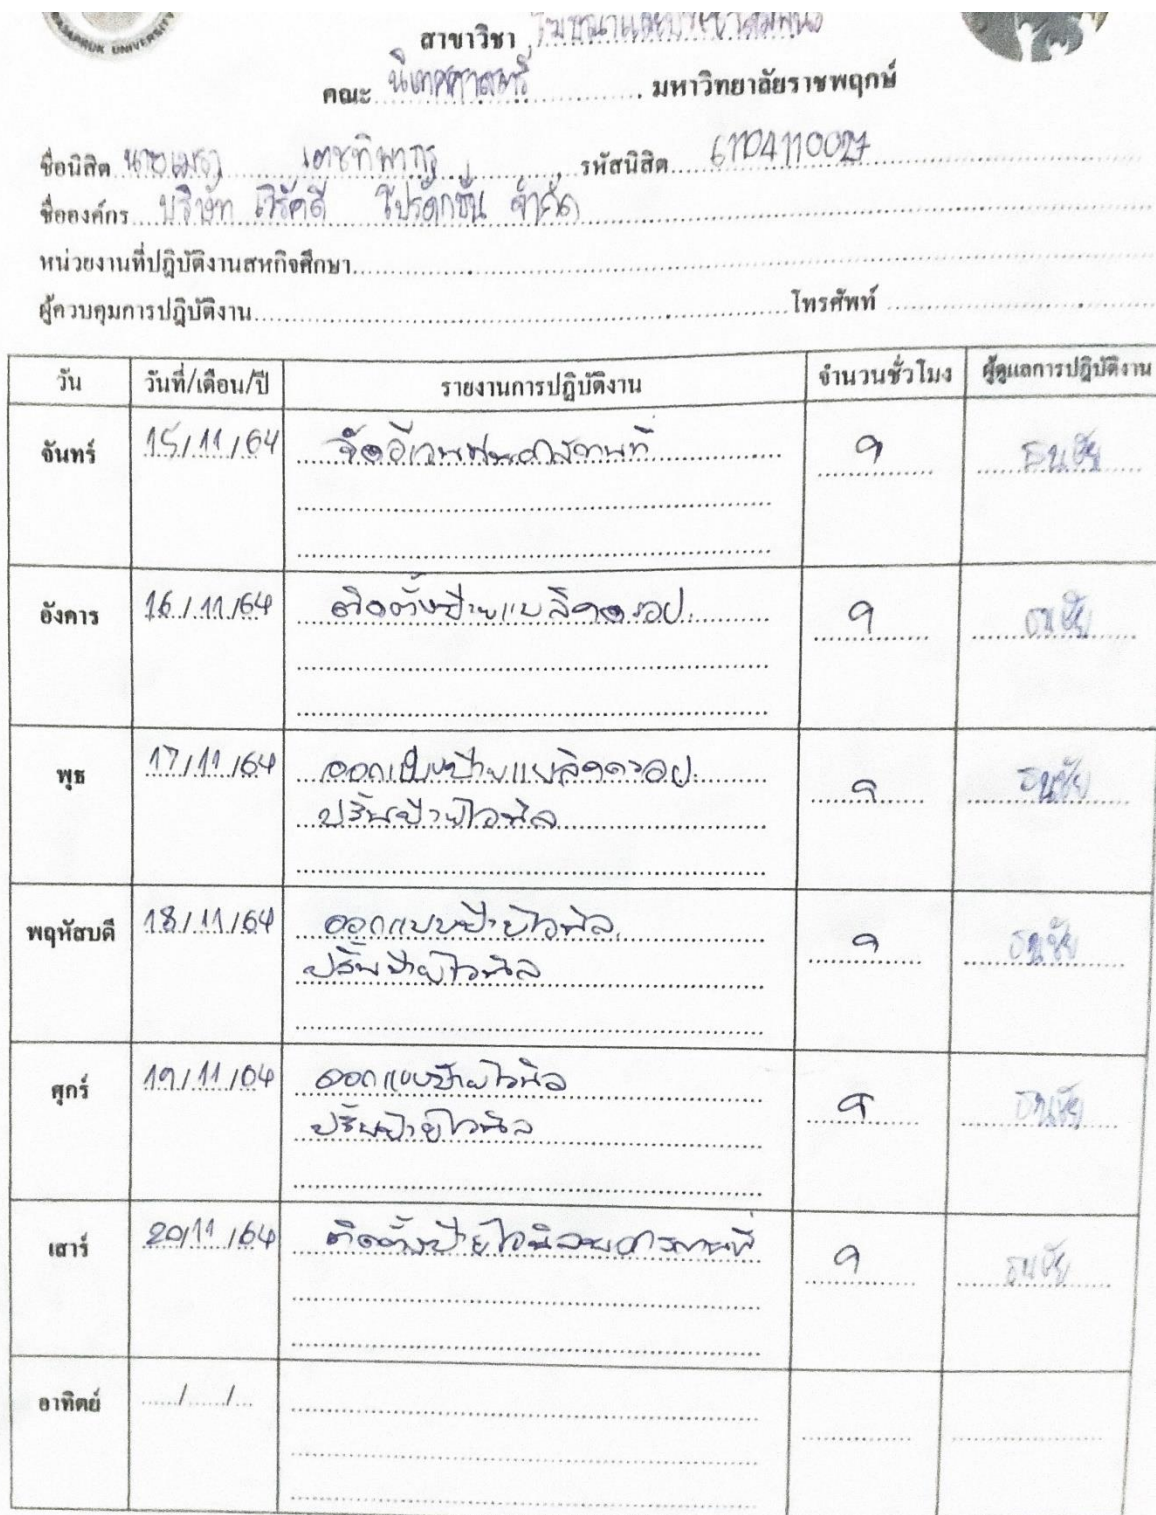 RAJAPRUK UNIVERSITY
สาขาวิชา โฆษณาและประชาสัมพันธ์
คณะ นิเทศศาสตร์ มหาวิทยาลัยราชพฤกษ์
ชื่อนิสิต นาย รหัสนิสิต 61104110027
ชื่อองค์กร บริษัท โปรดักชั่น จำกัด
หน่วยงานที่ปฏิบัติงานสหกิจศึกษา
ผู้ควบคุมการปฏิบัติงาน โทรศัพท์
วัน วันที่/เดือน/ปี รายงานการปฏิบัติงาน จำนวนชั่วโมง ผู้ดูแลการปฏิบัติงาน
จันทร์ 15/11/64 จัดอีเวนท์นอกสถานที่ 9 ธนชัย
อังคาร 16/11/64 ติดตั้งป้ายแบล็คดรอป 9 ธนชัย
พุธ 17/11/64 ออกแบบป้ายแบล็คดรอป 9 ธนชัย
ปริ้นป้ายไวนิล
พฤหัสบดี 18/11/64 ออกแบบป้ายไวนิล 9 ธนชัย
ปริ้นป้ายไวนิล
ศุกร์ 19/11/64 ออกแบบป้ายไวนิล 9 ธนชัย
ปริ้นป้ายไวนิล
เสาร์ 20/11/64 ติดตั้งป้ายไวนิลนอกสถานที่ 9 ธนชัย
อาทิตย์ / /